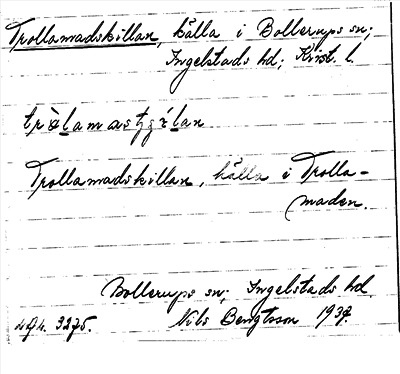 Trollamadskillan, källa i Bollerups sn;
Ingelstads hd; Krist. l.
Trollamadskillan, källa i Trolla-
maden.
Bollerups sn; Ingelstads hd.
Nils Bengtsson 1937.